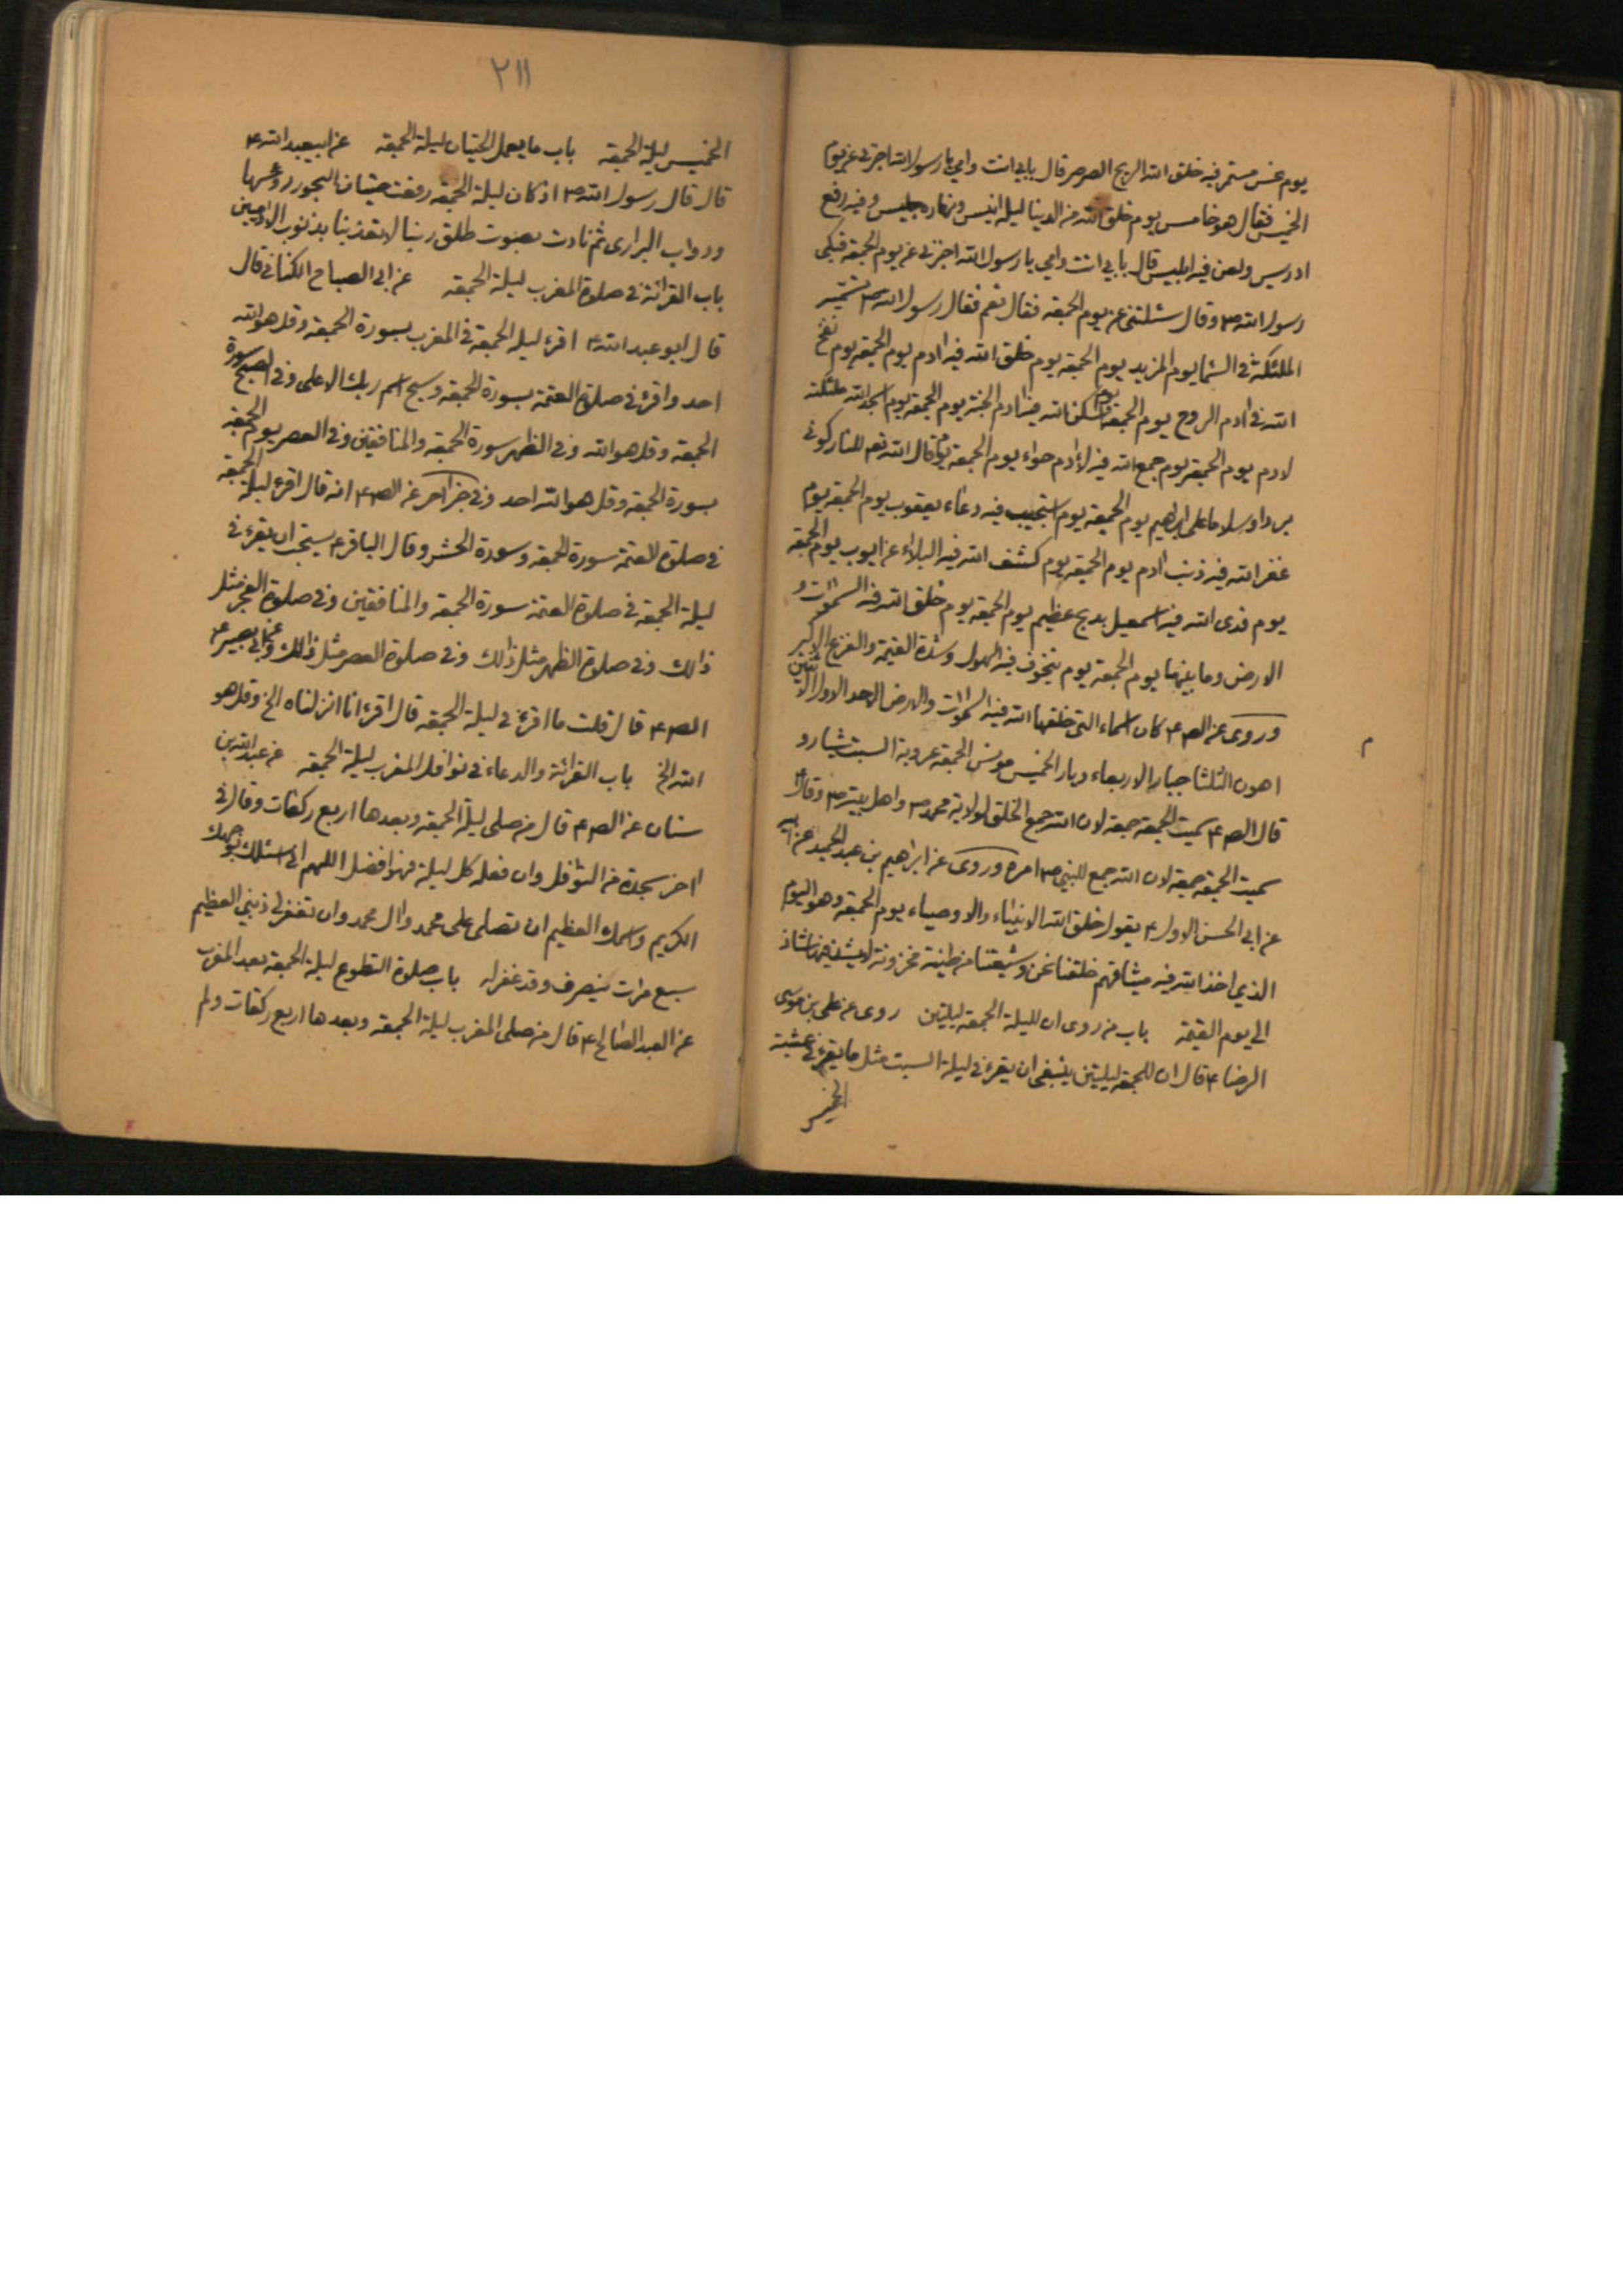 يوم نحس مستمر فيه خلق الله الريح الصرصر قال بابي انت وامي يا رسول الله اخبرني عن يوم
الخميس فقال هو خامس يوم خلق الله من الدنيا ليله انيس ونهاره جليس وفيه رفع
ادريس ولعن فيه ابليس قال بابي انت وامي يا رسول الله اخبرني عن يوم الجمعة فبكى
رسول الله ص وقال سئلتني عن يوم الجمعة فقال نعم فقال رسول الله ص تسميه
الملئكة في السماء يوم المزيد يوم الجمعة يوم خلق الله فيه ادم يوم الجمعة يوم نفخ
الله في ادم الروح يوم الجمعة يوم اسكن الله فيه ادم الجنة يوم الجمعة يوم اسجد الله ملئكته
لادم يوم الجمعة يوم جمع الله فيه لادم حواء يوم الجمعة يوم قال الله تعم للنار كوني
بردا وسلاما على ابراهيم يوم الجمعة يوم استجيب فيه دعاء يعقوب يوم الجمعة يوم
غفر الله فيه ذنب ادم يوم الجمعة يوم كشف الله فيه البلاء عن ايوب يوم الجمعة
يوم فدى الله فيه اسمعيل بذبح عظيم يوم الجمعة يوم خلق الله فيه السموات و
الارض وما بينهما يوم الجمعة يوم يتخوف فيه الهول وشدة القيمة والفزع الاكبر
وروى عن الص ع كان اسماء التي خلقها الله فيه السموات والارض الاحد الاول الاثنين
اهون الثلثا جبار الاربعاء دبار الخميس مونس الجمعة عروبة السبت شيارو
قال الص ع سميت الجمعة جمعة لان الله جمع الخلق لولاية محمد ص واهل بيته ص وقال ع
سميت الجمعة جمعة لان الله جمع للنبي ص امره وروى عن ابراهيم بن عبد الحميد عن ابيه
عن ابي الحسن الاول ع يقول خلق الله الانبياء والاوصياء يوم الجمعة وهو اليوم
الذي اخذ الله فيه ميثاقهم خلقنا نحن وشيعتنا من طينة مخزونة لا يشذ منها شاذ
الي يوم القيمة باب من روى ان لليلة الجمعة ليلتين روى عن علي بن موسى
الرضا ع قال ان للجمعة ليلتين ينبغي ان يقرء في ليلة السبت مثل ما يقرء في عشية
الخميس
م
٢١١
الخميس ليلة الجمعة باب ما يعمل الحيتان ليلة الجمعة عن ابيعبد الله ع
قال قال رسول الله ص اذ كان ليلة الجمعة رفعت حيتان البحور رؤسها
ودواب البراري ثم نادت بصوت طلق ربنا لا تعذبنا بذنوب الادميين
باب القرائة في صلوة المغرب ليلة الجمعة عن ابي الصباح الكناني قال
قال ابو عبد الله ع اقرء ليلة الجمعة في المغرب بسورة الجمعة وقل هو الله
احد واقرء في صلوة العتمة بسورة الجمعة وسبح اسم ربك الاعلى وفي الصبح سورة
الجمعة وقل هو الله وفي الظهر سورة الجمعة والمنافقين وفي العصر يوم الجمعة
بسورة الجمعة وقل هو الله احد وفي خبر اخر عن الص ع انه قال اقرء ليلة الجمعة
في صلوة العتمة سورة الجمعة وسورة الحشر وقال الباقر ع يستحب ان يقرء في
ليلة الجمعة في صلوة العتمة سورة الجمعة والمنافقين وفي صلوة الفجر مثل
ذالك وفي صلوة الظهر مثل ذالك وفي صلوة العصر مثل ذالك وعن ابي بصير ع
الص ع قال قلت ما اقرء في ليلة الجمعة قال اقرء انا انزلناه الخ وقل هو
الله الخ باب القرائة والدعاء في نوافل المغرب ليلة الجمعة عن عبد الله بن
سنان عن الص ع قال من صلى ليلة الجمعة وبعدها اربع ركعات وقال في
اخر سجدة من النوافل وان فعله كل ليلة فهو افضل اللهم اني اسئلك بوجهك
الكريم واسمك العظيم ان تصلي على محمد وال محمد وان تغفر لي ذنبي العظيم
سبع مرات ينصرف وقد غفر له باب صلوة التطوع ليلة الجمعة بعد المغرب
عن العبد الصالح ع قال من صلى المغرب ليلة الجمعة وبعدها اربع ركعات ولم